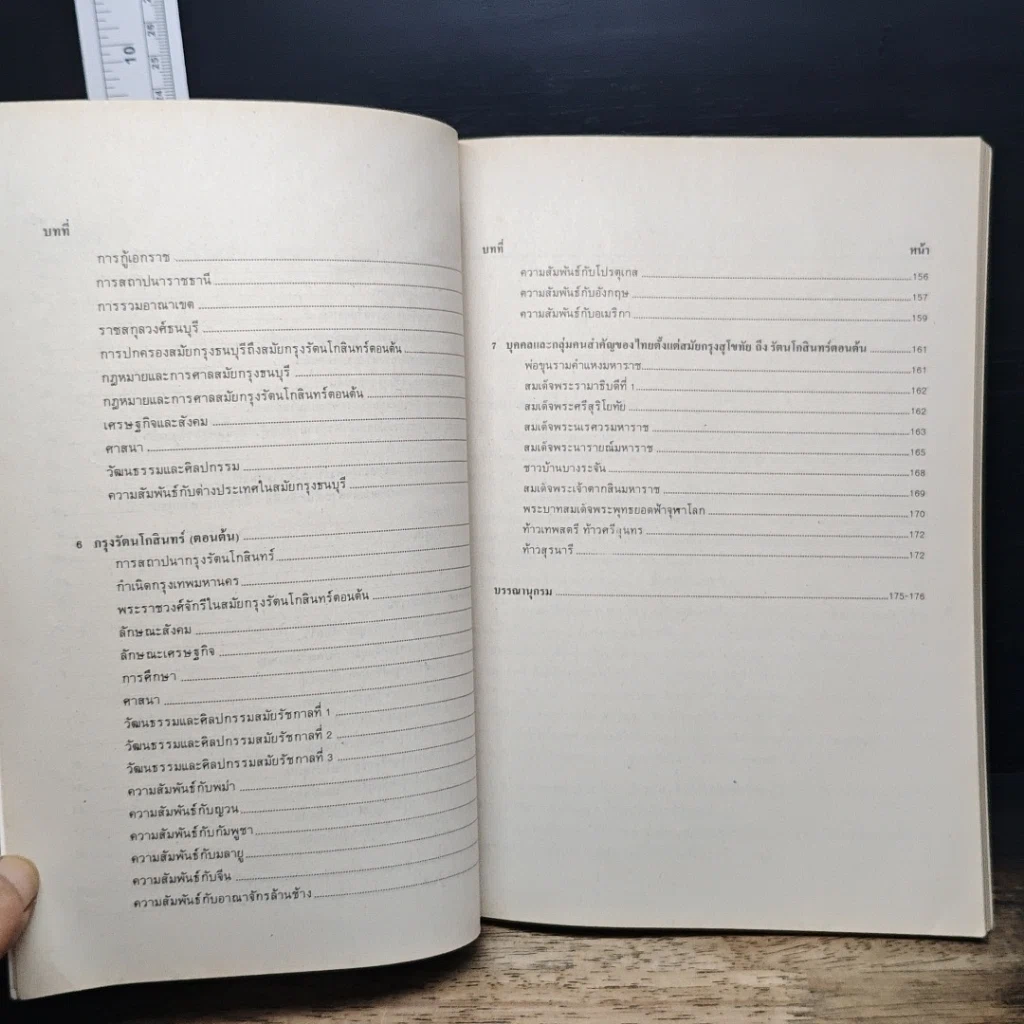 10
26
25
24
บทที่
การกู้เอกราช
การสถาปนาราชธานี
การรวมอาณาเขต
ราชสกุลวงศ์ธนบุรี
การปกครองสมัยกรุงธนบุรีถึงสมัยกรุงรัตนโกสินทร์ตอนต้น
กฎหมายและการศาลสมัยกรุงธนบุรี
กฎหมายและการศาลสมัยกรุงรัตนโกสินทร์ตอนต้น
เศรษฐกิจและสังคม
ศาสนา
วัฒนธรรมและศิลปกรรม
ความสัมพันธ์กับต่างประเทศในสมัยกรุงธนบุรี
6 กรุงรัตนโกสินทร์ (ตอนต้น)
การสถาปนากรุงรัตนโกสินทร์
กำเนิดกรุงเทพมหานคร
พระราชวงศ์จักรีในสมัยกรุงรัตนโกสินทร์ตอนต้น
ลักษณะสังคม
ลักษณะเศรษฐกิจ
การศึกษา
ศาสนา
วัฒนธรรมและศิลปกรรมสมัยรัชกาลที่ 1
วัฒนธรรมและศิลปกรรมสมัยรัชกาลที่ 2
วัฒนธรรมและศิลปกรรมสมัยรัชกาลที่ 3
ความสัมพันธ์กับพม่า
ความสัมพันธ์กับญวน
ความสัมพันธ์กับกัมพูชา
ความสัมพันธ์กับมลายู
ความสัมพันธ์กับจีน
ความสัมพันธ์กับอาณาจักรล้านช้าง
บทที่ หน้า
ความสัมพันธ์กับโปรตุเกส 156
ความสัมพันธ์กับอังกฤษ 157
ความสัมพันธ์กับอเมริกา 159
7 บุคคลและกลุ่มคนสำคัญของไทยตั้งแต่สมัยกรุงสุโขทัย ถึง รัตนโกสินทร์ตอนต้น 161
พ่อขุนรามคำแหงมหาราช 161
สมเด็จพระรามาธิบดีที่ 1 162
สมเด็จพระศรีสุริโยทัย 162
สมเด็จพระนเรศวรมหาราช 163
สมเด็จพระนารายณ์มหาราช 165
ชาวบ้านบางระจัน 168
สมเด็จพระเจ้าตากสินมหาราช 169
พระบาทสมเด็จพระพุทธยอดฟ้าจุฬาโลก 170
ท้าวเทพสตรี ท้าวศรีสุนทร 172
ท้าวสุรนารี 172
บรรณานุกรม 175-176